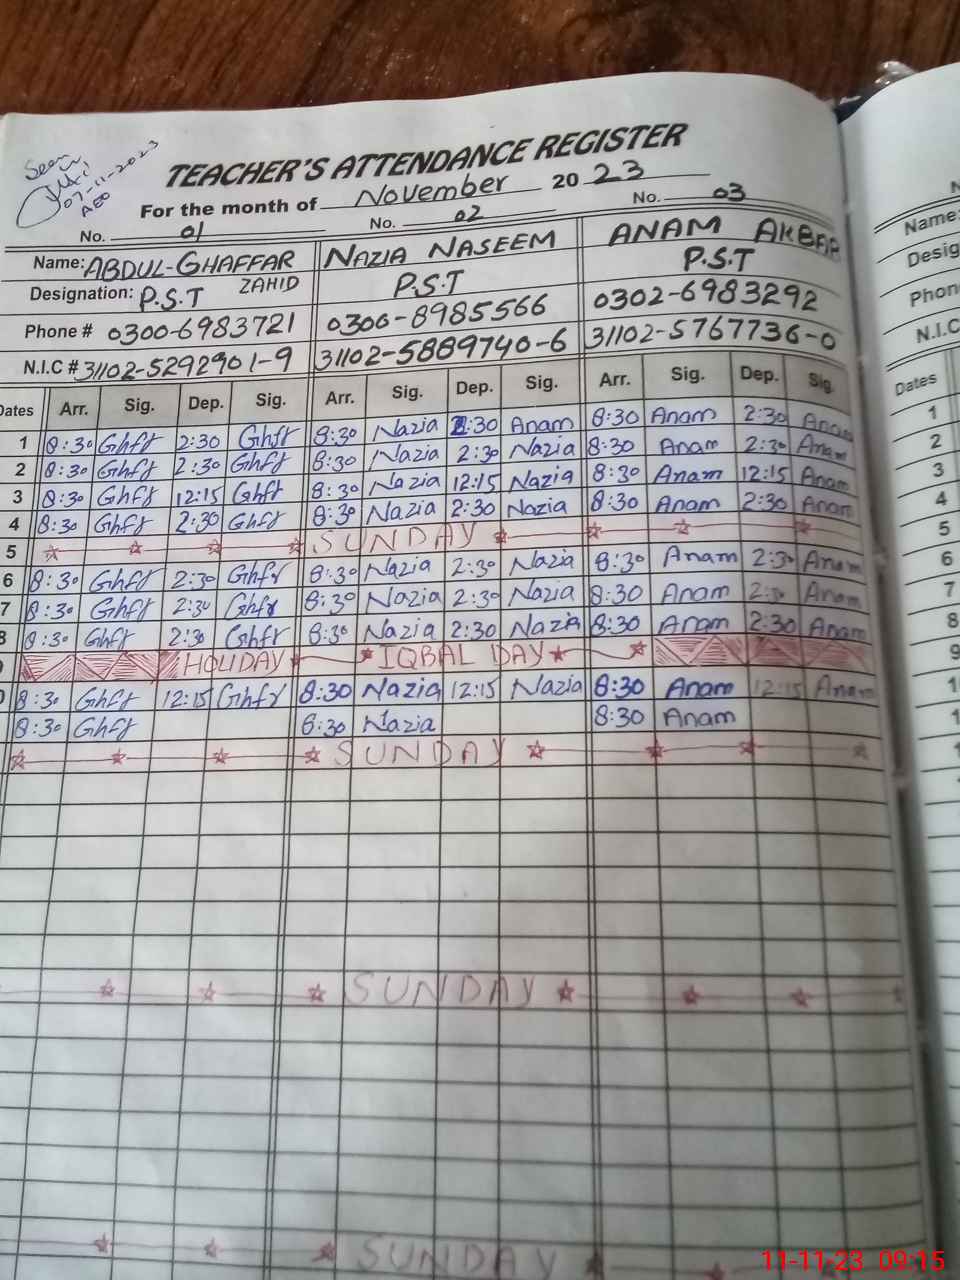 Seen
07-11-2023
AEO
TEACHER'S ATTENDANCE REGISTER
For the month of November 2023
No. 01 No. 02 No. 03
Name: ABDUL-GHAFFAR ZAHID NAZIA NASEEM ANAM AKBAR
Designation: P.S.T P.S.T P.S.T
Phone # 0300-6983721 0306-8985566 0302-6983292
N.I.C # 31102-5292901-9 31102-5889740-6 31102-5767736-0
Dates Arr. Sig. Dep. Sig. Arr. Sig. Dep. Sig. Arr. Sig. Dep. Sig.
1 8:30 Ghfr 2:30 Ghfr 8:30 Nazia 2:30 Anam 8:30 Anam 2:30 Anam
2 8:30 Ghfr 2:30 Ghfr 8:30 Nazia 2:30 Nazia 8:30 Anam 2:30 Anam
3 8:30 Ghfr 12:15 Ghfr 8:30 Nazia 12:15 Nazia 8:30 Anam 12:15 Anam
4 8:30 Ghfr 2:30 Ghfr 8:30 Nazia 2:30 Nazia 8:30 Anam 2:30 Anam
5 SUNDAY
6 8:30 Ghfr 2:30 Ghfr 8:30 Nazia 2:30 Nazia 8:30 Anam 2:30 Anam
7 8:30 Ghfr 2:30 Ghfr 8:30 Nazia 2:30 Nazia 8:30 Anam 2:30 Anam
8 8:30 Ghfr 2:30 Ghfr 8:30 Nazia 2:30 Nazia 8:30 Anam 2:30 Anam
9 HOLIDAY IQBAL DAY
0 8:30 Ghfr 12:15 Ghfr 8:30 Nazia 12:15 Nazia 8:30 Anam 12:15 Anam
8:30 Ghfr 8:30 Nazia 8:30 Anam
SUNDAY
SUNDAY
SUNDAY
Name:
Desig
Phon
N.I.C
Dates
1
2
3
4
5
6
7
8
9
1
1
1
11-11-23 09:15